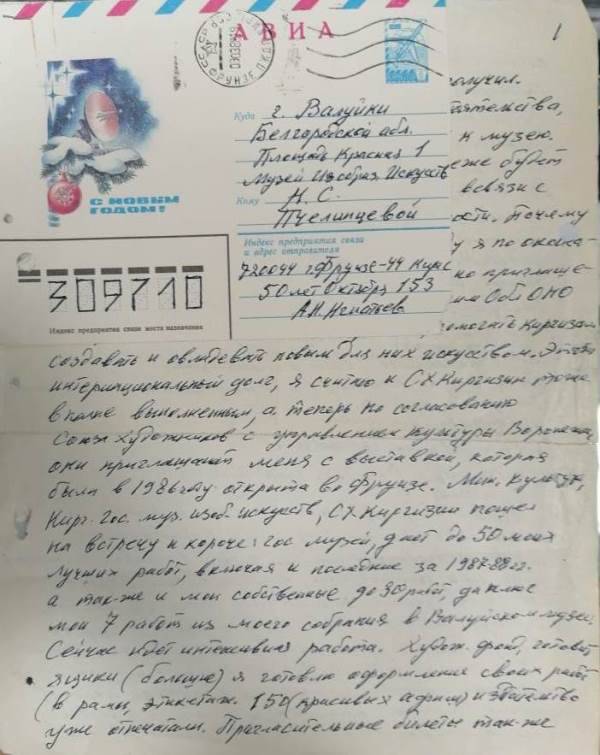 АВИА
1
С НОВЫМ
ГОДОМ!
Куда
г. Валуйки
Белгородской обл.
Площадь Красная 1
Музей Изобраз. Искусств
Кому
Н. С.
Пчелинцевой
Индекс предприятия связи
и адрес отправителя
720044 г. Фрунзе-44 Кирг
50 лет Октября 153
А.Н. Игнатьев
309710
Индекс предприятия связи места назначения
получил.
к музею.
будет
в связи с
Почему
я по оконча-
приглаше-
ОблОНО
помогать Киргизам
создавать и овладевать новым для них искусством. Этот
интернациональный долг, я считаю к СХ. Киргизии тоже
вполне выполненным, а теперь по согласованию
Союза художников с управлением культуры Воронежа,
они приглашают меня с выставкой, которая
была в 1986 году открыта во Фрунзе. Мин. культур,
Кирг. Гос. муз. изоб. искусств, СХ. Киргизии пошел
на встречу и короче: гос музей, дает до 50 моих
лучших работ, включая и последние за 1987-88 гг.
а так-же и мои собственные до 30 работ, да плюс
мои 7 работ из моего собрания в Валуйском музее.
Сейчас идет интенсивная работа. Худож. фонд, готовит
ящики (большие) я готовлю оформление своих работ
(в рамы, этикетаж. 150 (красивых афиш) издательство
уже отпечатали. Пригласительные билеты так-же